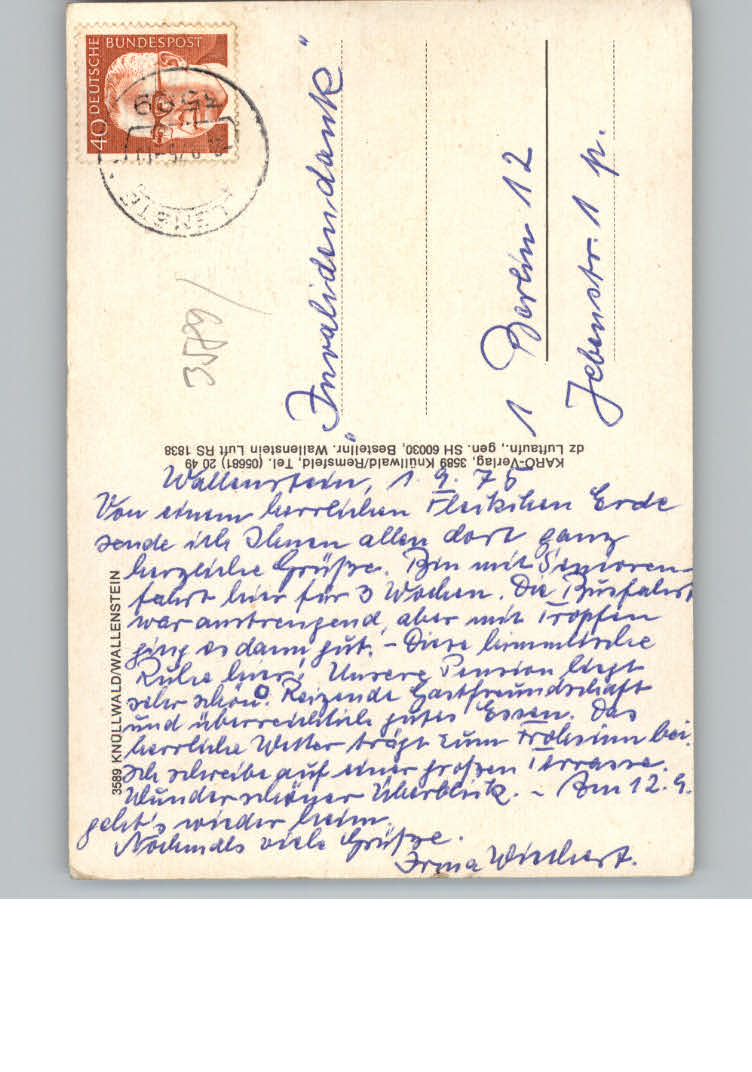 DEUTSCHE BUNDESPOST
40
3589
"Invalidendank"
1 Berlin 12
Jebenstr. 1 p.
KARO-Verlag, 3589 Knüllwald/Remsfeld, Tel. (05681) 20 49
dz Luftaufn., gen. SH 60030, Bestellnr. Wallenstein Luft RS 1838
3589 KNÜLLWALD/WALLENSTEIN
Wallenstein, 1.9.75
Von einem herrlichen Fleckchen Erde
sende ich Ihnen allen dort ganz
herzliche Grüße. Bin mit Senioren-
fahrt hier für 3 Wochen. Die Busfahrt
war anstrengend, aber mit Tropfen
ging es dann gut. – Diese himmlische
Ruhe hier! Unsere Pension liegt
sehr schön. Reizende Gastfreundschaft
und überreichlich gutes Essen. Das
herrliche Wetter trägt zum Frohsinn bei.
Ich schreibe auf einer großen Terrasse.
Wunderschöner Überblick. – Am 12.9.
geht's wieder heim.
Nochmals viele Grüße.
Irma